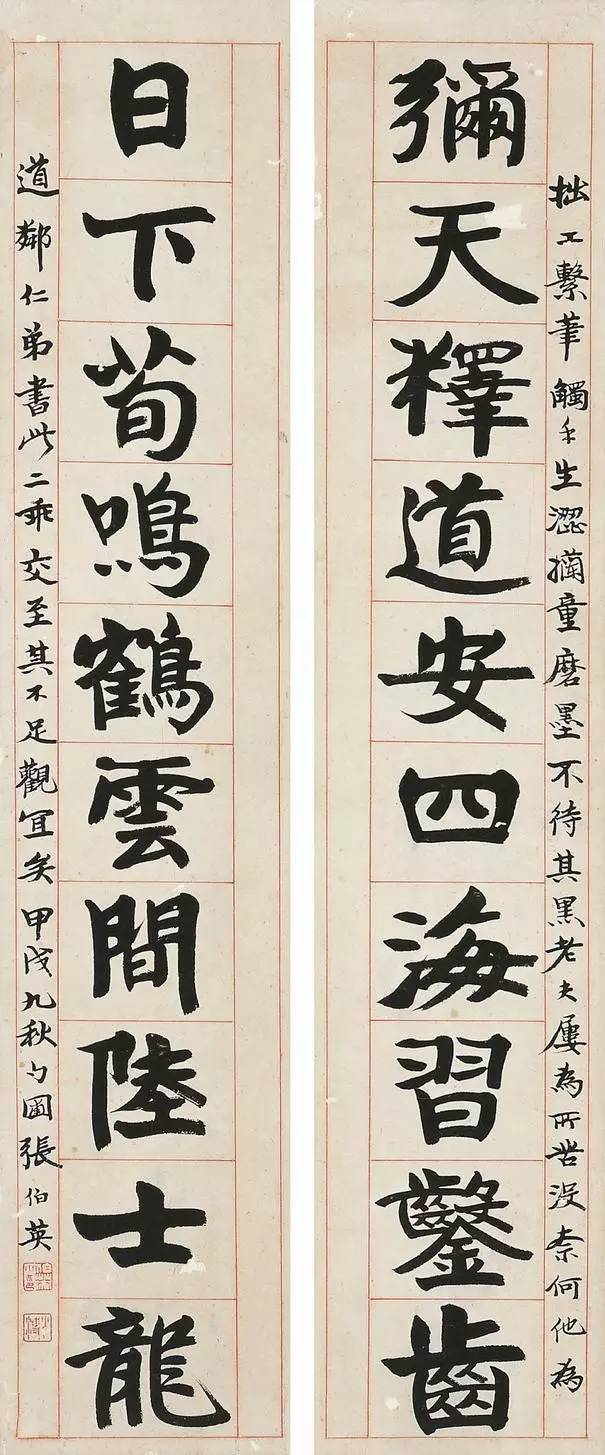 彌天釋道安四海習鑿齒
日下荀鳴鶴雲間陸士龍
拙工繫筆觸手生澀童磨墨不待其黑老夫屢為所苦沒柰何他為
道鄰仁弟書此二乖交至其不足觀宜矣甲戌九秋勺圃張伯英